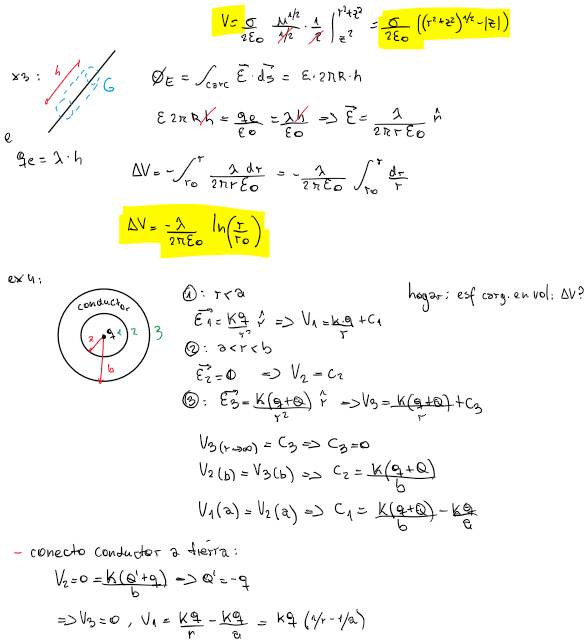 V = σ/2ε0 μ^1/2/1/2 · 1/2 |r²+z² z² = σ/2ε0 ((r²+z²)^1/2 - |z|)
x3:
h
G
ØE = ∫carc E⃗ · ds⃗ = E · 2πR · h
E 2πRh = qe/ε0 = λh/ε0 => E⃗ = λ/2πrε0 r̂
e
qe = λ · h
ΔV = -∫r0^r λ dr/2πrε0 = -λ/2πε0 ∫r0^r dr/r
ΔV = -λ/2πε0 ln(r/r0)
ex 4:
conductor
q 1 2 3
a
b
①: r<a
hogar: esf carg. en vol: ΔV?
E1⃗ = Kq/r² r̂ => V1 = Kq/r + C1
②: a<r<b
E2⃗ = 0 => V2 = C2
③: E3⃗ = K(q+Q)/r² r̂ => V3 = K(q+Q)/r + C3
V3(r→∞) = C3 => C3 = 0
V2(b) = V3(b) => C2 = K(q+Q)/b
V1(a) = V2(a) => C1 = K(q+Q)/b - Kq/a
- conecto conductor a tierra:
V2 = 0 = K(Q'+q)/b => Q' = -q
=> V3 = 0, V1 = Kq/r - Kq/a = Kq (1/r - 1/a)